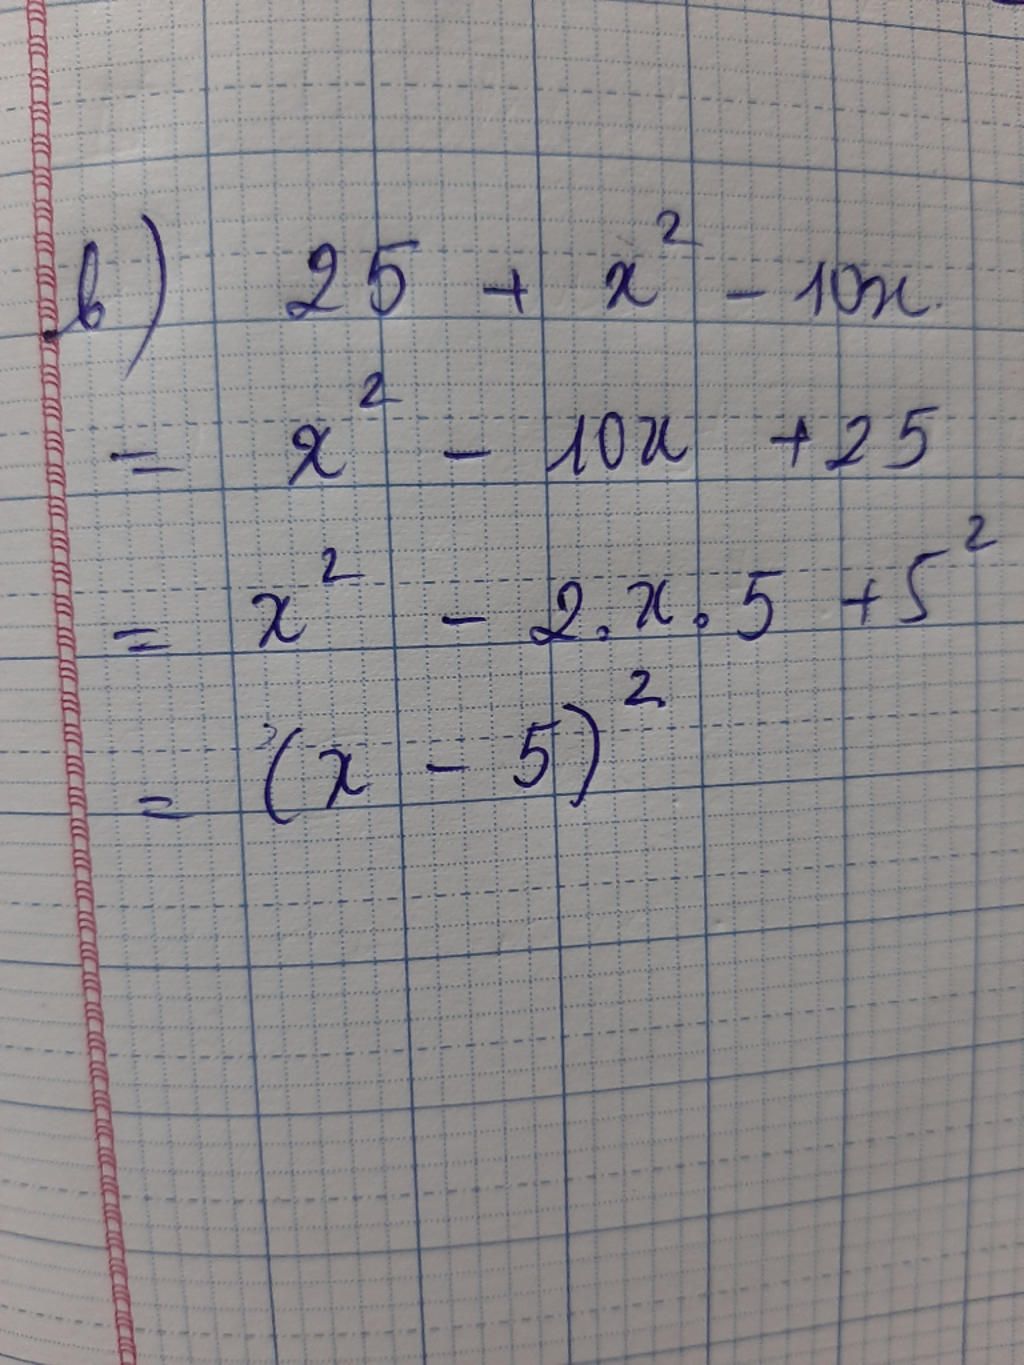 b) 25 + x² - 10x.
= x² - 10x + 25
= x² - 2.x.5 + 5²
= (x - 5)²